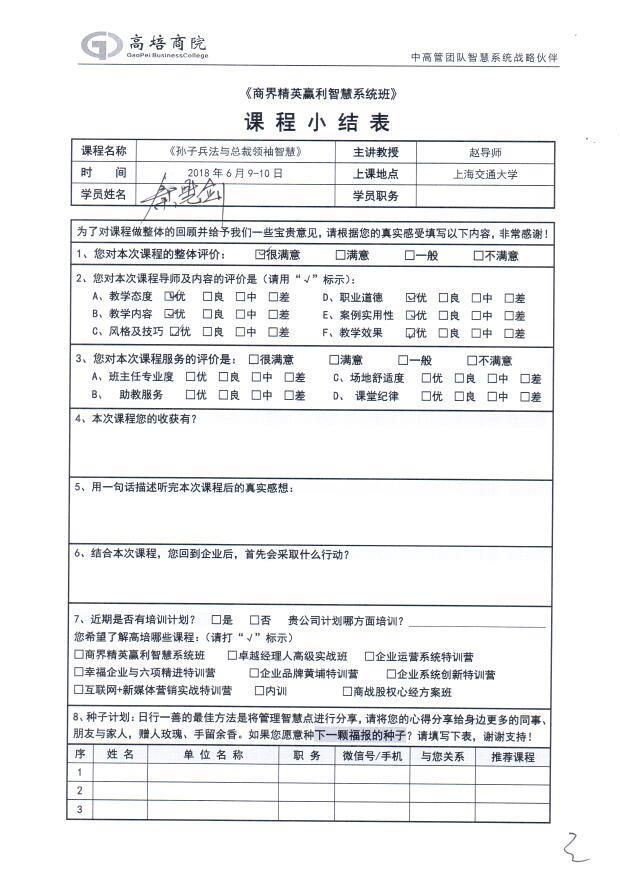 高培商院
GaoPei BusinessCollege
中高管团队智慧系统战略伙伴
《商界精英赢利智慧系统班》
课程小结表
课程名称 《孙子兵法与总裁领袖智慧》 主讲教授 赵导师
时 间 2018年6月9-10日 上课地点 上海交通大学
学员姓名 学员职务
为了对课程做整体的回顾并给予我们一些宝贵意见,请根据您的真实感受填写以下内容,非常感谢!
1、您对本次课程的整体评价: ☑很满意 □满意 □一般 □不满意
2、您对本次课程导师及内容的评价是(请用“√”标示):
A、教学态度 ☑优 □良 □中 □差 D、职业道德 ☑优 □良 □中 □差
B、教学内容 ☑优 □良 □中 □差 E、案例实用性 ☑优 □良 □中 □差
C、风格及技巧 ☑优 □良 □中 □差 F、教学效果 ☑优 □良 □中 □差
3、您对本次课程服务的评价是: □很满意 □满意 □一般 □不满意
A、班主任专业度 □优 □良 □中 □差 C、场地舒适度 □优 □良 □中 □差
B、 助教服务 □优 □良 □中 □差 D、 课堂纪律 □优 □良 □中 □差
4、本次课程您的收获有?
5、用一句话描述听完本次课程后的真实感想:
6、结合本次课程,您回到企业后,首先会采取什么行动?
7、近期是否有培训计划? □是 □否 贵公司计划哪方面培训?
您希望了解高培哪些课程:(请打“√”标示)
□商界精英赢利智慧系统班 □卓越经理人高级实战班 □企业运营系统特训营
□幸福企业与六项精进特训营 □企业品牌黄埔特训营 □企业系统创新特训营
□互联网+新媒体营销实战特训营 □内训 □商战股权心经方案班
8、种子计划:日行一善的最佳方法是将管理智慧点进行分享,请将您的心得分享给身边更多的同事、
朋友与家人,赠人玫瑰、手留余香。如果您愿意种下一颗福报的种子?请填写下表,谢谢支持!
序 姓 名 单 位 名 称 职 务 微信号/手机 与您关系 推荐课程
1
2
3